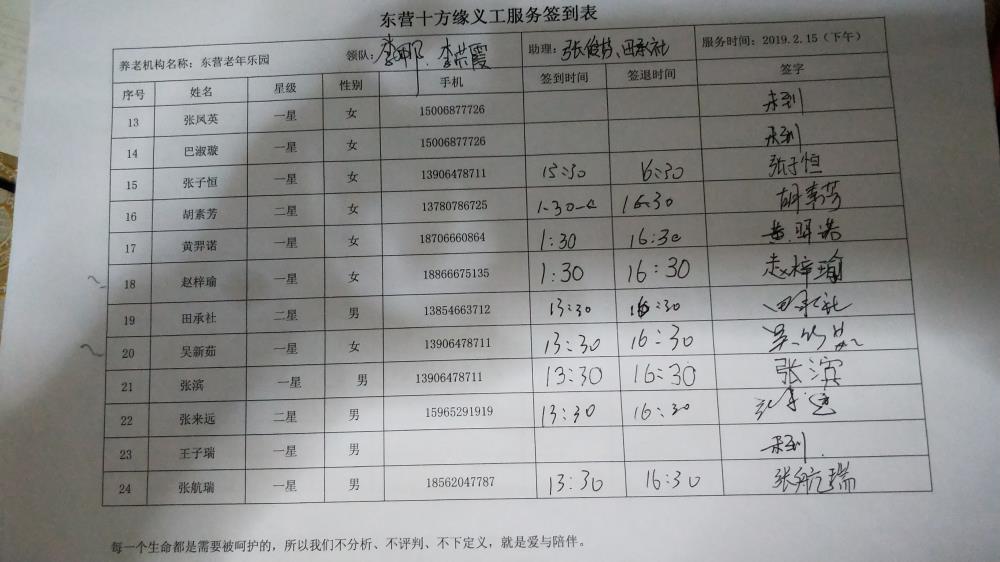 东营十方缘义工服务签到表
养老机构名称：东营老年乐园 领队：李娜、李荣霞 助理：张俊芳、田承社 服务时间：2019.2.15（下午）
序号 姓名 星级 性别 手机 签到时间 签退时间 签字
13 张凤英 一星 女 15006877726 未到
14 巴淑璇 一星 女 15006877726 未到
15 张子恒 一星 女 13906478711 15:30 16:30 张子恒
16 胡素芳 二星 女 13780786725 16:30 胡素芳
17 黄羿诺 一星 女 18706660864 1:30 16:30
18 赵梓瑜 一星 女 18866675135 1:30 16:30 赵梓瑜
19 田承社 二星 男 13854663712 13:30 16:30 田承社
20 吴新茹 一星 女 13906478711 13:30 16:30 吴新茹
21 张滨 一星 男 13906478711 13:30 16:30 张滨
22 张来远 二星 男 15965291919 13:30 16:30 张来远
23 王子瑞 一星 男 未到.
24 张航瑞 一星 男 18562047787 13:30 16:30 张航瑞
每一个生命都是需要被呵护的，所以我们不分析、不评判、不下定义，就是爱与陪伴。